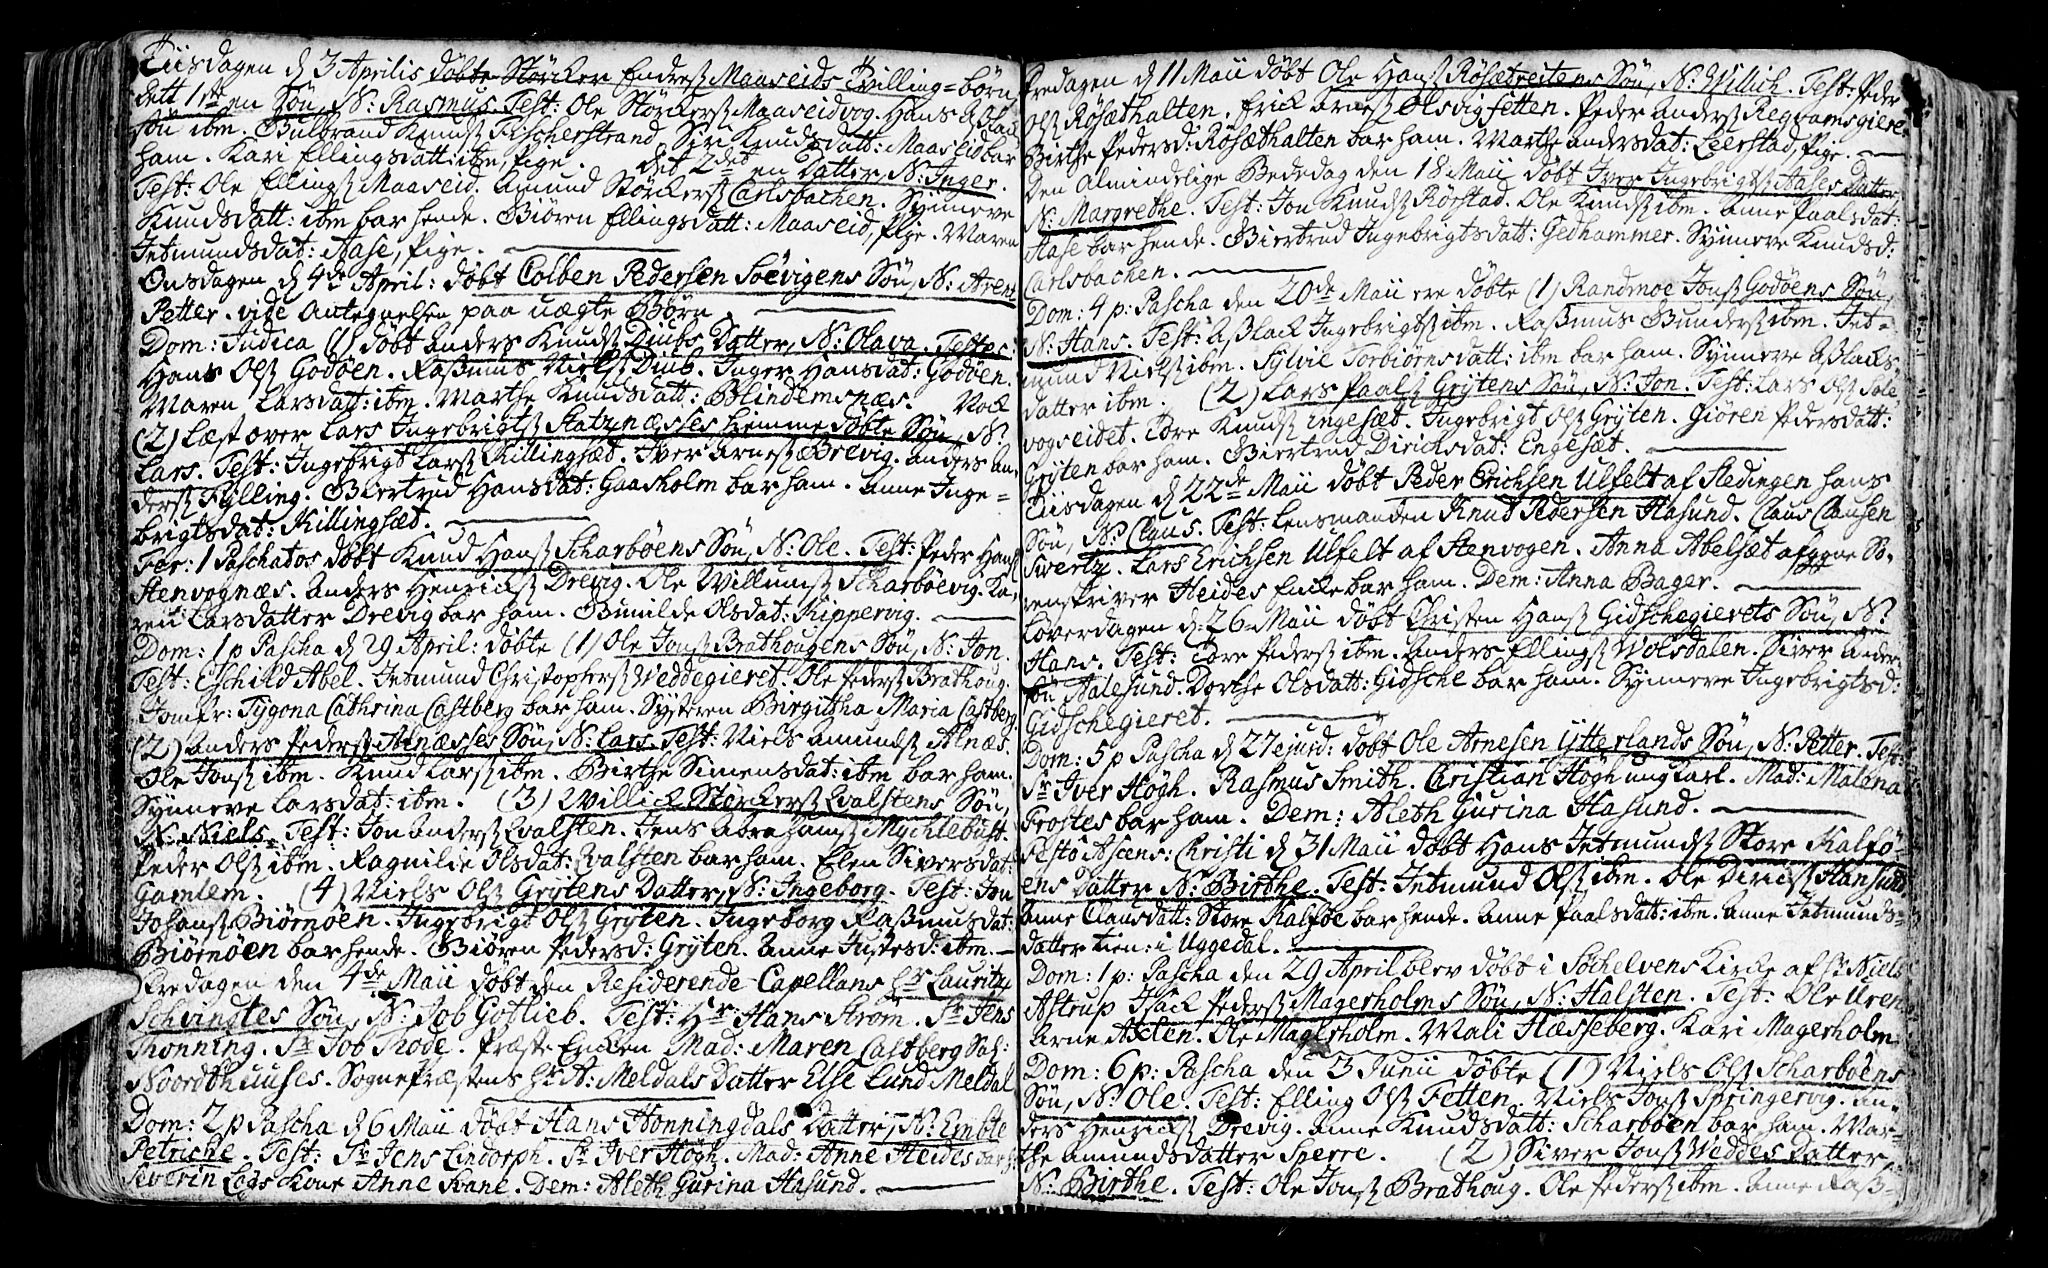 Tiisdagen d 3 Aprilis døbte Størcker Enderss Maaseids Tvilling=børn,
dett 1ste en Søn, N: Rasmus. Test: Ole Størckerss Maaseidvog. Hans
søn ibm. Gulbrand Knudss Fischerstrand. Siri Knudsdatt: Maaseid bar
ham. Kari Ellingsdatt: ibm, Pige. det 2det en Datter, N: Inger.
Test: Ole Ellingss Maaseid. Amund Størckerss Carlsbachen. Synneve
Knudsdatt: ibm bar hende. Giøren Ellingsdatt: Maaseid, Pige. Maren
Jetmundsdat: Aase, Pige.
Onsdagen d 4de April: døbt Colben Pedersen Soevigens Søn, N: Arent
Petter. vide Antegnelsen paa uægte Børn.
Dom: Judica (1) døbt Anders Knudss Diubs Datter, N: Olava. Testes:
Hans Olss Godøen. Rasmus Nielss Diub. Inger Hansdat: Godøen.
Maren Larsdatt: ibm. Marthe Knudsdatt: Blindemsnæs. Nock
(2) Læst over Lars Ingebrigtss hiemmedøbte Søn, N:
Lars. Test: Ingebrigt Larss Killingsæt. Iver Arness Brevig. Anders An-
derss Fylling. Giertrud Hansdat: Gaasholm bar ham. Anne Inge-
brigtsdat: Killingsæt.
Fer: 1 Paschatos døbt Knud Hanss Scharbøens Søn, N: Ole. Test: Peder Hanss
Stenvognæs. Anders Henricss Drevig. Ole Willumss Scharbøevig. Ka-
ren Larsdatter Drevig bar ham. Gunilde Olsdat: Kippervig.
Dom: 1 p Pascha d 29 April: døbte (1) Ole Jonss Brathougens Søn, N: Jon.
Test: Eschild Abel. Jetmund Christopherss Weddegieret. Ole Pederss Brathoug.
Jomfr: Tygona Cathrina Castberg bar ham. Systeren Birgitha Maria Castberg.
(2) Anders Pederss Alnæsses Søn, N: Lars. Test: Niels Amundss Alnæs.
Ole Jonss ibm. Knud Larss ibm. Birthe Simensdat: ibm bar ham.
Synneve Larsdat: ibm. (3) Willick Størckerss Qvalstens Søn,
N: Niels. Test: Jon Anderss Qvalsten. Jens Abrahamss Mychlebust.
Peder Olss ibm. Ragnilde Olsdat: Qvalsten bar ham. Elen Siversdat:
Gamlem. (4) Niels Olss Grytens Datter, N: Ingeborg. Test: Jon
Johanss Biørnøen. Ingebrigt Olss Gryten. Ingeborg Rasmusdat:
Biørnøen bar hende. Giøren Pedersd: Gryten. Anne Justesd: ibm.
Fredagen den 4de Maii døbt den Residerende Capellans Hr Lauritz
Schvindtes Søn, N: Job Gotlieb. Test: Hr Hans Strøm. Sr Jens
Thonning. Sr Job Thode. Præste Encken Mad: Maren Castberg Sal:
Noordthuuses. Sognepræstens Hr A: Meldals Datter Else Lund Meldal
Dom: 2 p Pascha d 6 Maii døbt Hans Honningdals Datter, N: Emble
Petriche. Test: Sr Jens Lindorph. Sr Iver Høgh. Mad: Anne Heides bar
Severin Kone Anne Kane. Dem: Aleth Gurina Hasund.
Fredagen d 11 Maii døbt Ole Hanss Røsætreitens Søn, N: Willich. Test: Peder
Olss Røsæthalten. Erick Arness Olsvigfetten. Peder Anderss Reqvamsgieret.
Birthe Pedersd: Røsæthalten bar ham. Marthe Andersdat: Leerstad, Pige.
Den Almindelige Bededag den 18 Maii døbt Iver Ingebrigtss Aases Datter,
N: Margrethe. Test: Jon Knudss Rørstad. Ole Knudss ibm. Anne Paalsdat:
Aase bar hende. Giertrud Ingebrigtsdatt: Gedhammer. Synneve Knudsd:
Carlsbachen.
Dom: 4 p: Pascha den 20de Maii ere døbte (1) Randmoe Jonss Godøens Søn,
N: Hans. Test: Asslack Ingebrigtss ibm. Rasmus Gunderss ibm. Jet-
mund Nielss ibm. Sylvie Torbiørnsdatt: ibm bar ham. Synneve Asslacks-
datter ibm. (2) Lars Paalss Grytens Søn, N: Jon. Test: Lars Olss Sole-
vogseidet. Tore Knudss Engesæt. Ingebrigt Olss Gryten. Giøren Pedersdatt:
Gryten bar ham. Giertrud Dirichsdat: Engesæt.
Tiisdagen d 22de Maii døbt Peder Erichsen Ulfelt af Stedingen hans
Søn, N: Claus. Test: Lensmanden Knud Pedersen Hasund. Claus Clausen
Swertz. Lars Erichsen Ulfelt af Stenvogen. Anna Abelsæt afggne So-
renskriver Heides Encke bar ham. Dem: Anna Bager.
Løverdagen d: 26 Maii døbt Christen Hanss Gidschegierets Søn, N:
Hans. Test: Tore Pederss ibm. Anders Ellingss Wolsdalen. Siver Ander-
søn Aalesund. Dorthe Olsdatt: Gidsche bar ham. Synneve Ingebrigtsd:
Gidschegieret.
Dom: 5 p Pascha d 27 ejusd: døbt Ole Arnesen Ytterlands Søn, N: Petter. Test:
Sr Iver Høgh. Rasmus Smith. Christian Høgh ung Karl. Mad: Malena
Frostes bar ham. Dem: Aleth Gurina Hasund.
Festo Ascens: Christi d 31 Maii døbt Hans Jetmundss Store Kalfø-
ens Datter N: Birthe. Test: Jetmund Olss ibm. Ole Diricss Hansund
Anne Clausdatt: Store Kalføe bar hende. Anne Paalsdatt: ibm. Anne Jetmunds-
datter tien: i Uggedal.
Dom: 1 p: Pascha den 29 April blev døbt i Søchelvens Kirke af Hr Niels
Astrup Isack Pederss Magerholms Søn, N: Halsten. Test: Ole Uren
Arne Axlen. Ole Magerholm. Mali Hæsseberg. Kari Magerholm
Dom: 6 p: Pascha den 3 Junii døbte (1) Niels Olss Scharbøens
Søn, N: Ole. Test: Elling Olss Fetten. Niels Jonss Springervig. An-
ders Henricss Drevig. Anne Knudsdatt: Scharbøen bar ham. Mar-
the Amundsdatter Sperre. (2) Siver Jonss Weddes Datter,
N: Birthe. Test: Ole Jonss Brathoug. Ole Pederss ibm. Anne Rass-